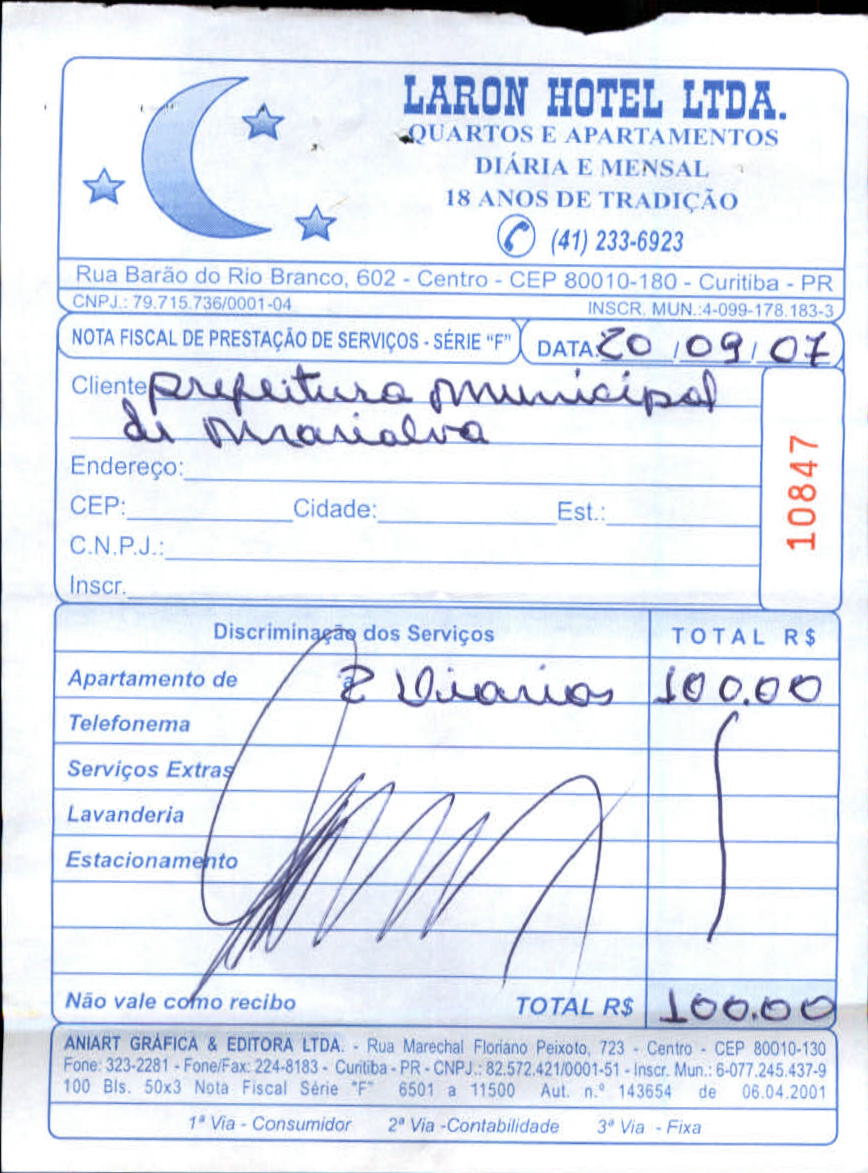 LARON HOTEL LTDA.
QUARTOS E APARTAMENTOS
DIÁRIA E MENSAL
18 ANOS DE TRADIÇÃO
(41) 233-6923
Rua Barão do Rio Branco, 602 - Centro - CEP 80010-180 - Curitiba - PR
CNPJ.: 79.715.736/0001-04 INSCR. MUN.:4-099-178.183-3
NOTA FISCAL DE PRESTAÇÃO DE SERVIÇOS - SÉRIE "F" DATA: 20 / 09 / 07
Cliente prefeitura municipal
de marialva
Endereço:
CEP: Cidade: Est.:
C.N.P.J.:
Inscr.
10847
Discriminação dos Serviços TOTAL R$
Apartamento de 2 Diarias 100.00
Telefonema
Serviços Extras
Lavanderia
Estacionamento
Não vale como recibo TOTAL R$ 100.00
ANIART GRÁFICA & EDITORA LTDA. - Rua Marechal Floriano Peixoto, 723 - Centro - CEP 80010-130
Fone: 323-2281 - Fone/Fax: 224-8183 - Curitiba - PR - CNPJ.: 82.572.421/0001-51 - Inscr. Mun.: 6-077.245.437-9
100 Bls. 50x3 Nota Fiscal Série "F" 6501 a 11500 Aut. n.º 143654 de 06.04.2001
1ª Via - Consumidor 2ª Via -Contabilidade 3ª Via - Fixa